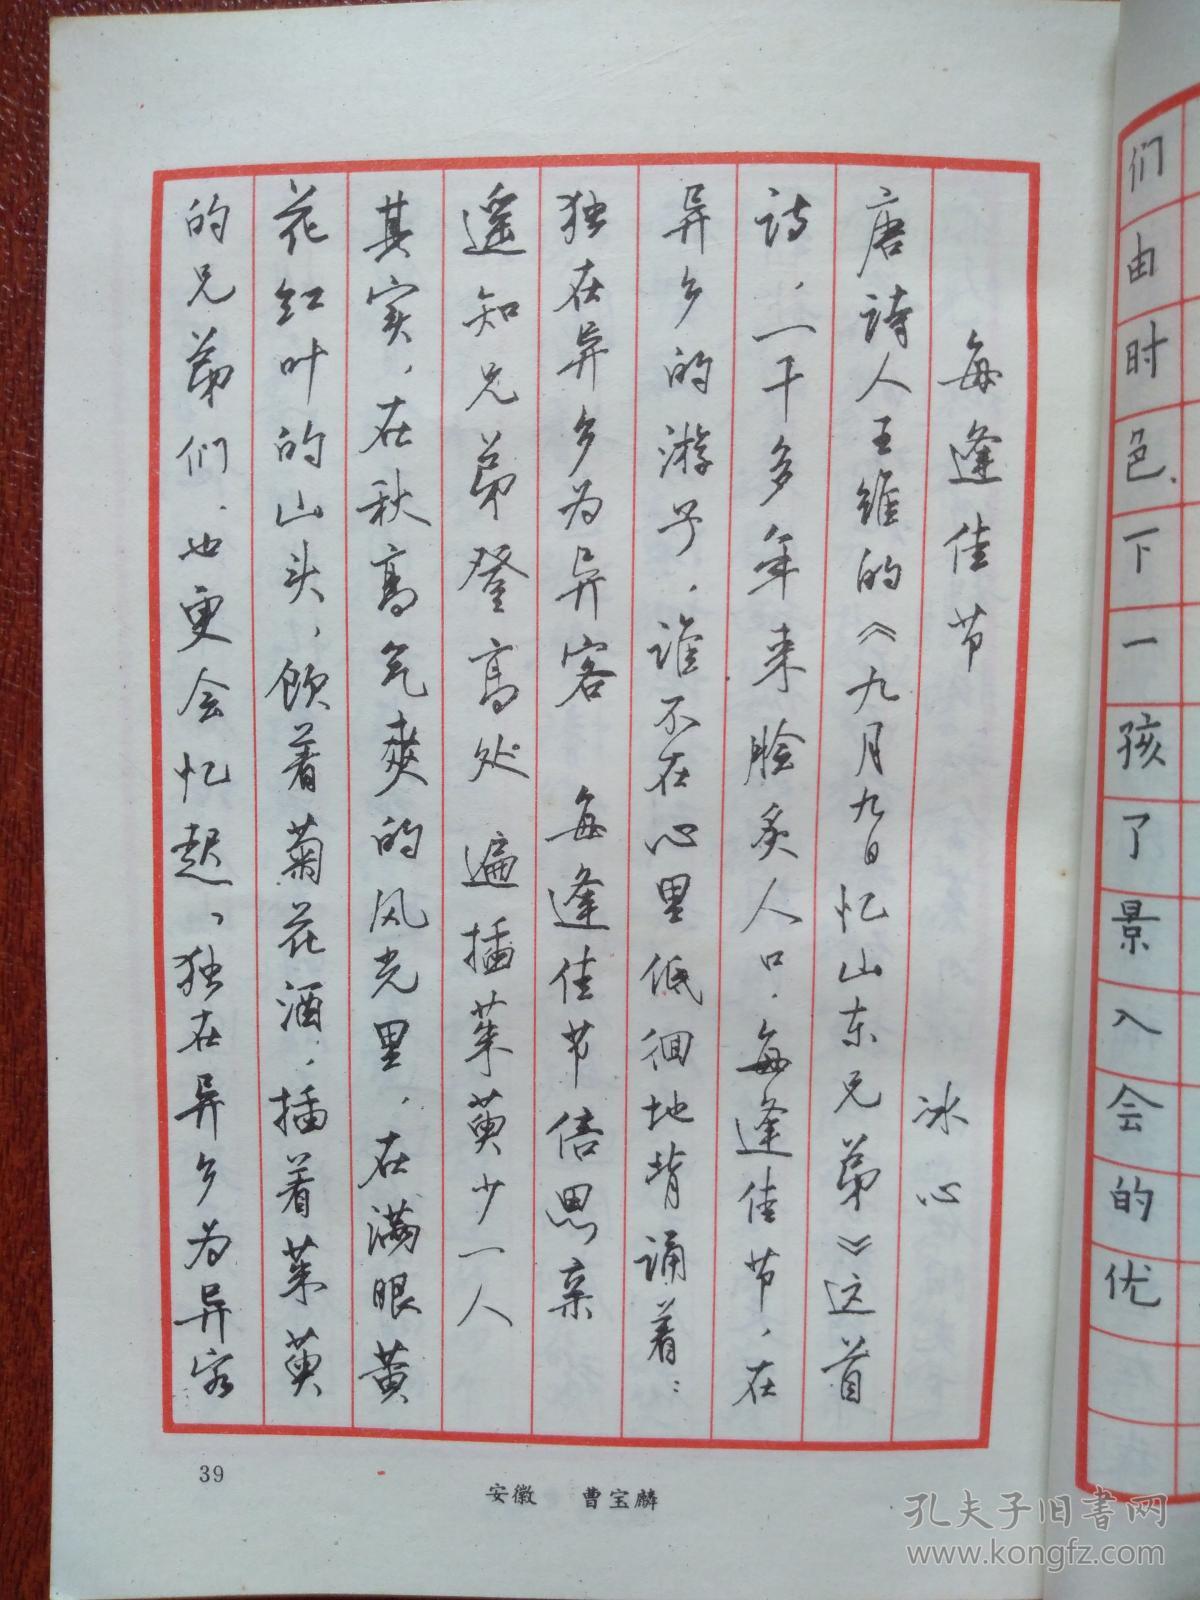 每逢佳节 冰心
唐诗人王维的《九月九日忆山东兄弟》这首
诗，一千多年来脍炙人口，每逢佳节，在
异乡的游子，谁不在心里低徊地背诵着：
独在异乡为异客 每逢佳节倍思亲
遥知兄弟登高处 遍插茱萸少一人
其实，在秋高气爽的风光里，在满眼黄
花红叶的山头，饮着菊花酒，插着茱萸
的兄弟们，也更会忆起、独在异乡为异客
39
安徽 曹宝麟
们由时色、下一孩了景入会的优
孔夫子旧书网
www.kongfz.com